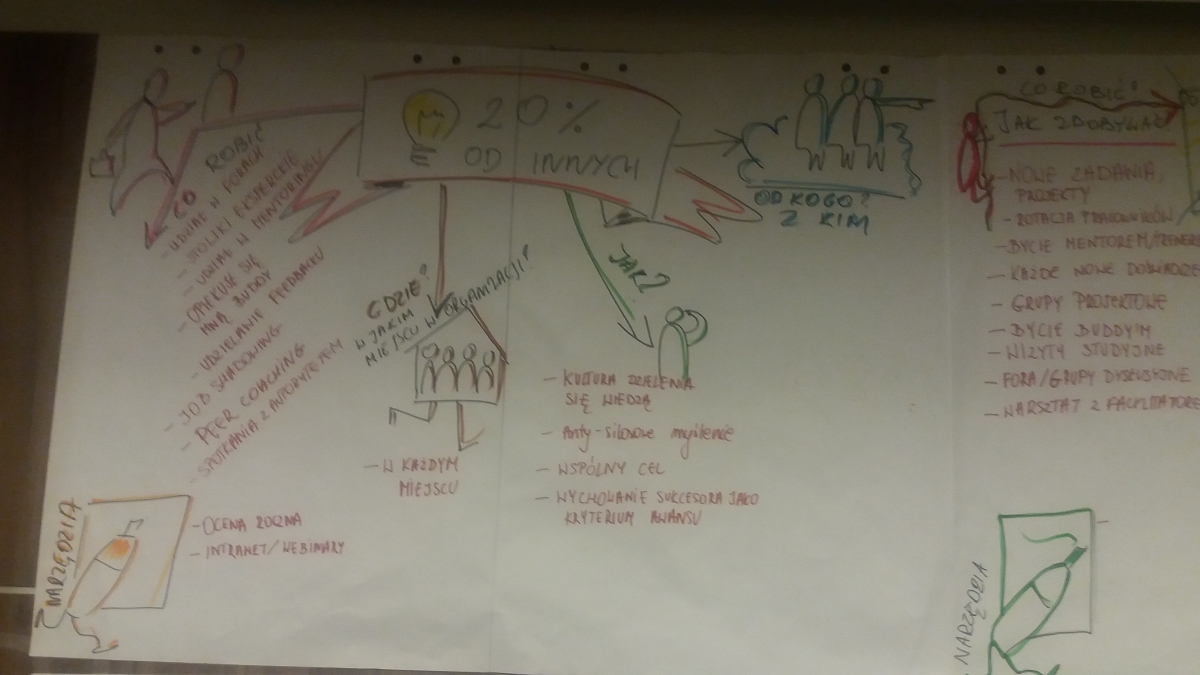 20%
OD INNYCH
CO ROBIĆ
- UDZIAŁ W FORACH
- STOLIKI EKSPERCKIE
- UDZIAŁ W MENTORINGU
- OPIEKUJE SIĘ
MNĄ BUDDY
- UDZIELANIE FEEDBACKU
- JOB SHADOWING
- PEER COACHING
- SPOTKANIA Z AUTORYTETEM
GDZIE?
W JAKIM
MIEJSCU W ORGANIZACJI?
- W KAŻDYM
MIEJSCU
JAK?
- KULTURA DZIELENIA
SIĘ WIEDZĄ
- Anty-silosowe myślenie
- WSPÓLNY CEL
- WYCHOWANIE SUKCESORA JAKO
KRYTERIUM AWANSU
OD KOGO?
Z KIM
NARZĘDZIA
- OCENA ROCZNA
- INTRANET/WEBINARY
CO ROBIĆ?
JAK ZDOBYWAĆ?
- NOWE ZADANIA,
PROJEKTY
- ROTACJA PRACOWNIKÓW
- BYCIE MENTOREM/TRENERE
- KAŻDE NOWE DOŚWIADCZE
- GRUPY PROJEKTOWE
- BYCIE BUDDYIM
- WIZYTY STUDYJNE
- FORA/GRUPY DYSKUSYJNE
- WARSZTAT Z FACILITATORE
NARZĘDZIA